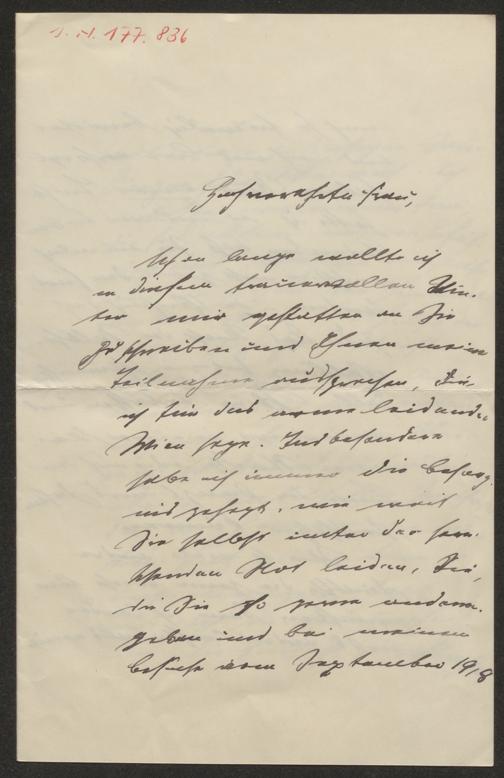 I. N. 177.836
Hochverehrte Frau,
Schon lange wollte ich
in diesem trauervollen Win-
ter mir gestatten an Sie
zu schreiben und Ihnen meine
Teilnahme aussprechen, die
ich für das arme leidende
Wien hege. Insbesondere
habe ich immer die Besorg-
nis gehegt, wie weit
Sie selbst unter der herr-
schenden Not leiden, Sie,
die Sie so gerne anderen
geben und bei meinem
Besuche vom September 1918